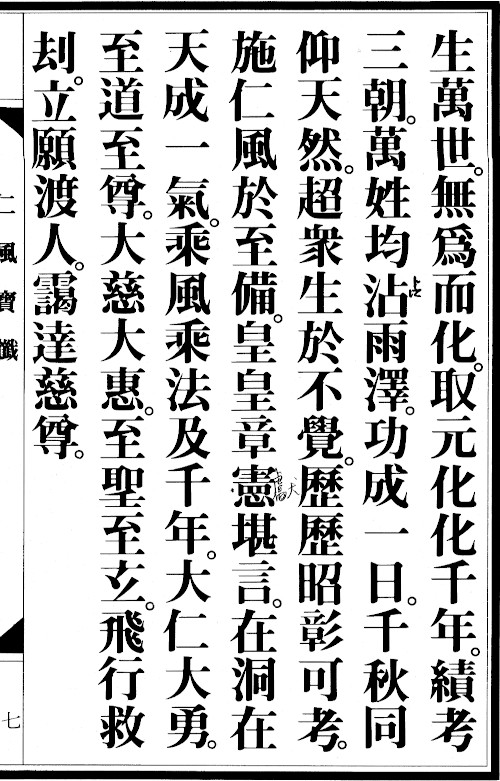 生萬世。無爲而化。取元化化千年。績考
三朝。萬姓均沾雨澤。功成一日。千秋同
仰天然。超衆生於不覺。歷歷昭彰可考。
施仁風於至備。皇皇章憲堪言。在洞在
天成一氣。乘風乘法及千年。大仁大勇。
至道至尊。大慈大惠。至聖至玄。飛行救
刦。立願渡人。靄達慈尊。
仁風寶懺
七